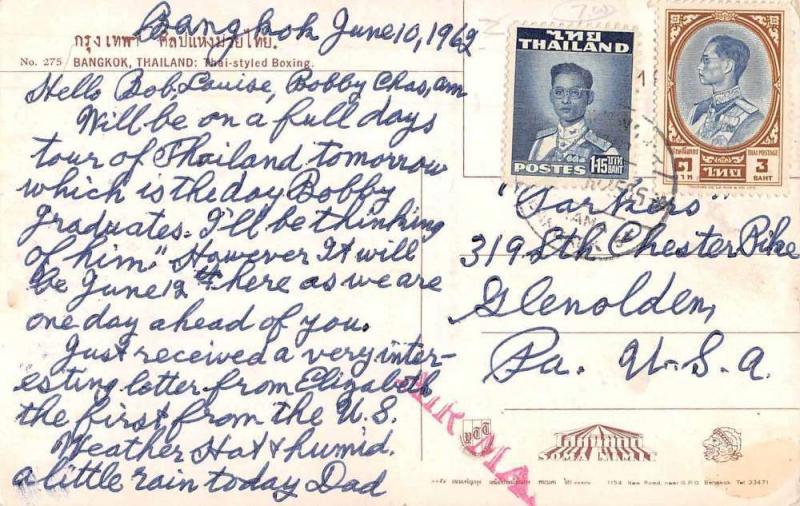 Bangkok June 10, 1962
กรุงเทพฯ ศิลปแห่งมวยไทย.
No. 275 BANGKOK, THAILAND: Thai-styled Boxing.
Hello Bob, Louise, Bobby Chas, am
Will be on a full days
tour of Thailand tomorrow
which is the day Bobby
graduates. I'll be thinking
of him." However It will
be June 12th there as we are
one day ahead of you.
Just received a very inter-
esting letter from Elizabeth
the first from the U.S.
Weather Hot & humid.
a little rain today Dad
ไทย
THAILAND
POSTES 1.15 บาท BAHT
THAI POSTAGE
๓ บาท ไทย 3 BAHT
319 8th Chester Pike
Glenolden,
Pa. U.S.A.
AIR MA
1154 New Road, near G.P.O. Bangkok Tel 33471